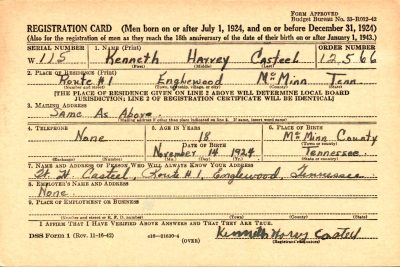 FORM APPROVED
Budget Bureau No. 33-R012-42
REGISTRATION CARD (Men born on or after July 1, 1924, and on or before December 31, 1924)
(Also for the registration of men as they reach the 18th anniversary of the date of their birth on or after January 1, 1943.)
SERIAL NUMBER 1. NAME (Print) ORDER NUMBER
W. 115 Kenneth Harvey Casteel 12,566
(First) (Middle) (Last)
2. PLACE OF RESIDENCE (Print)
Route #1 Englewood McMinn Tenn
(Number and street) (Town, township, village, or city) (County) (State)
[THE PLACE OF RESIDENCE GIVEN ON LINE 2 ABOVE WILL DETERMINE LOCAL BOARD
JURISDICTION; LINE 2 OF REGISTRATION CERTIFICATE WILL BE IDENTICAL]
3. MAILING ADDRESS
Same As Above.
[Mailing address if other than place indicated on line 2. If same, insert word same]
4. TELEPHONE 5. AGE IN YEARS 6. PLACE OF BIRTH
None 18 McMinn County
DATE OF BIRTH (Town or county)
November 14 1924 Tennessee
(Mo.) (Day) (Yr.) (State or country)
7. NAME AND ADDRESS OF PERSON WHO WILL ALWAYS KNOW YOUR ADDRESS
Casteel, Route #1, Englewood, Tennessee
8. EMPLOYER'S NAME AND ADDRESS
None.
9. PLACE OF EMPLOYMENT OR BUSINESS
(Number and street or R. F. D. number) (Town) (County) (State)
I AFFIRM THAT I HAVE VERIFIED ABOVE ANSWERS AND THAT THEY ARE TRUE.
DSS Form 1 (Rev. 11-16-42) (OVER) Kenneth Harvey Casteel
(Registrant's signature)